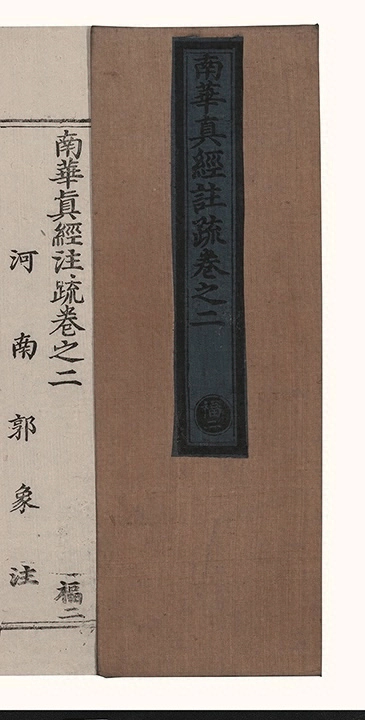 南華真經註疏卷之二
福二
南華真經注疏卷之二
福二
河南郭象注